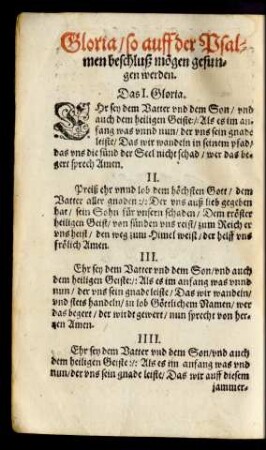 Gloria / so auff der Psal-
men beschluß mögen gesun-
gen werden.
Das I. Gloria.
EHr sey dem Vatter vnd dem Son / vnd
auch dem heiligen Geiste :/: Als es im an-
fang was vnnd nun / der vns sein gnade
leiste / Das wir wandeln in seinem pfad /
das vns die sünd der Seel nicht schad / wer das be-
gert sprech Amen.
II.
Preiß ehr vnnd lob dem höchsten Gott / dem
Vatter aller gnaden :/: Der vns auß lieb gegeben
hat / sein Sohn für vnsern schaden / Dem tröster
heiligen Geist / von sünden vns reist / zum Reich er
vns heist / den weg zum Himel weist / der helff vns
frölich Amen.
III.
Ehr sey dem Vatter vnd dem Son / vnd auch
dem heiligen Geiste :/: Als es im anfang was vnnd
nun / der vns sein gnade leiste / Das wir wandeln /
vnd stets handeln / zu lob Göttlichem Namen / wer
das begert / der wirdt gewert / nun sprecht von her-
tzen Amen.
IIII.
Ehr sey dem Vatter vnd dem Son / vnd auch
dem heiligen Geiste :/: Als es im anfang was vnd
nun / der vns sein gnade leiste / Das wir auff diesem
jammer-